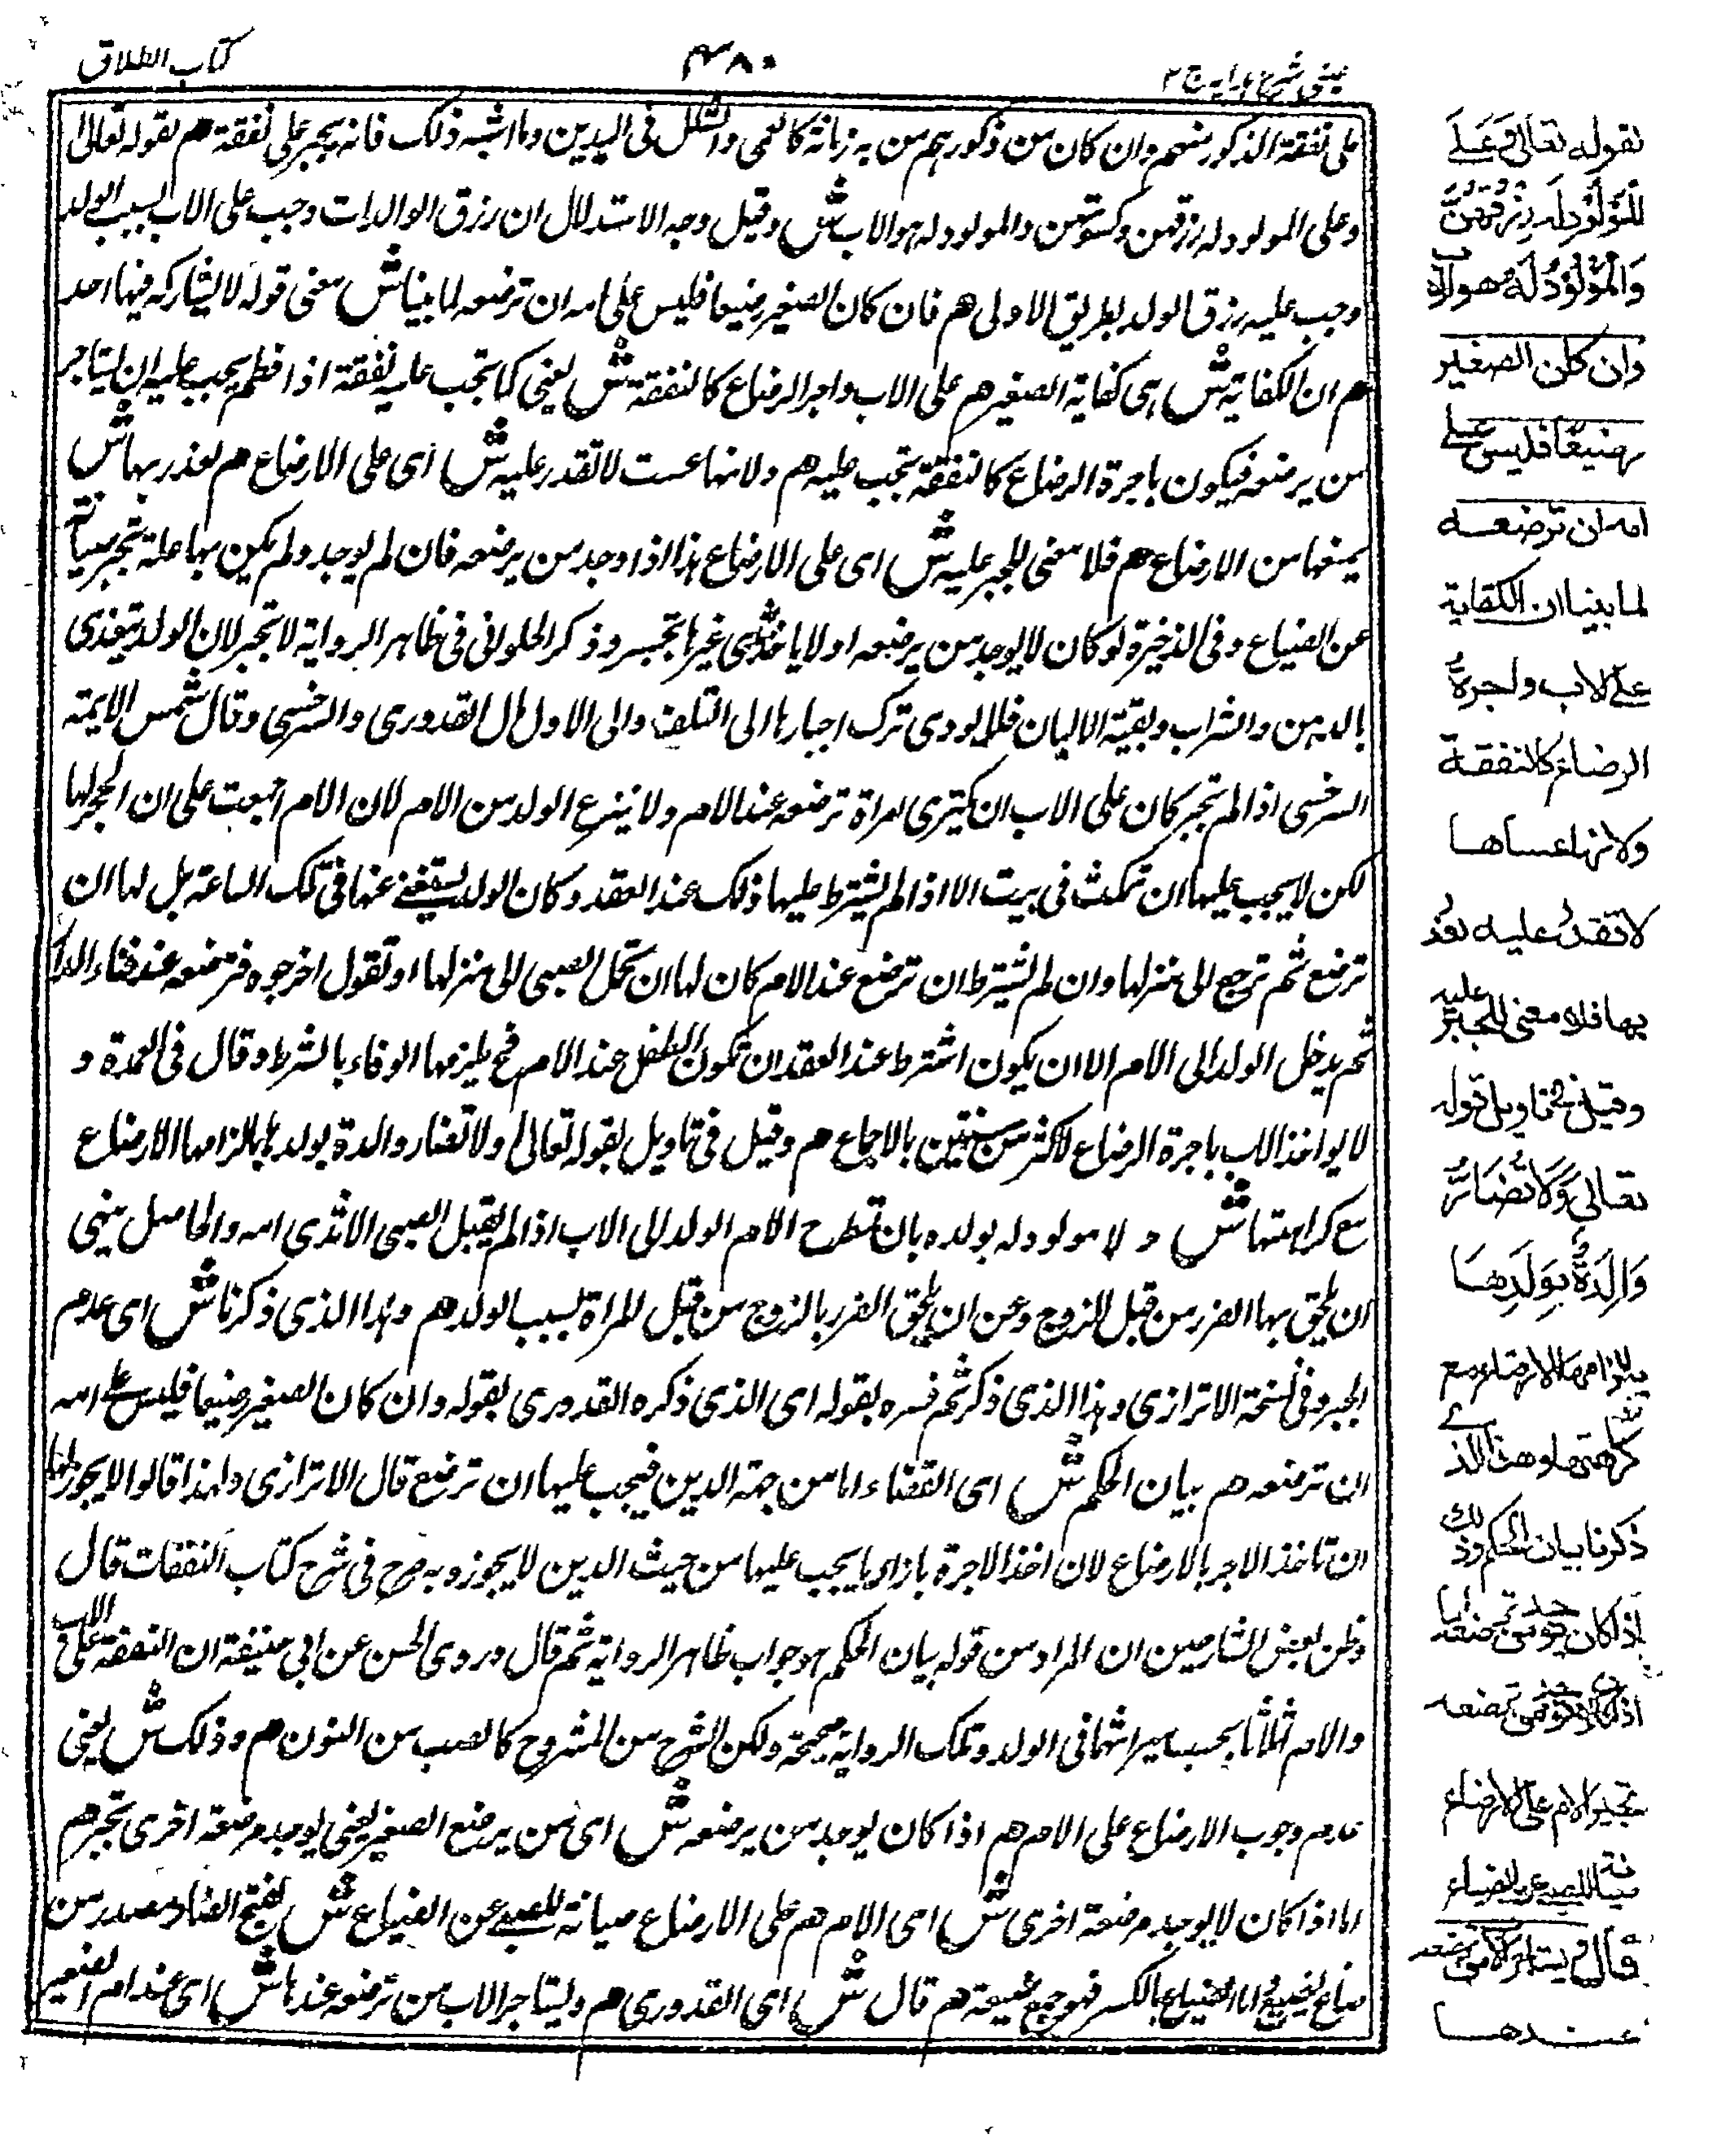 كتاب الطلاق
۴۸۰
عينى شرح هدايه ج ۲
على نفقة الذكور منهم وان كان من ذكورهم من به زمانة كالعمى والشلل فى اليدين وما اشبه ذلك فانه يجبر على نفقة هم لقوله تعالى
وعلى المولود له رزقهن وكسوتهن والمولود له هو الاب ش وقيل وجه الاستدلال ان رزق الوالدات وجب على الاب بسبب الولد
وجب عليه رزق الولد بطريق الاولى هم فان كان الصغير رضيعا فليس على امه ان ترضعه لما بينا ش معنى قوله لا يشاركه فيها احد
هم ان الكفاية ش اى كفاية الصغير هم على الاب واجر الرضاع كالنفقة ش يعنى كما تجب عليه نفقة اذا فطم يجب عليه ان يستاجر
من يرضعه فيكون باجرة الرضاع كالنفقة تجب عليه هم ولانها عست لا تقدر عليه ش اى على الارضاع هم لعذر بها ش
يمنعها من الارضاع هم فلا معنى للجبر عليه ش اى على الارضاع هذا اذا وجد من يرضعه فان لم يوجد ولم يكن بها علة تجبر صيانة
عن الضياع وفى الذخيرة لو كان لا يوجد من يرضعه او لا ياخذ ثدى غيرها تجبر وذكر الحلوانى فى ظاهر الرواية لا تجبر لان الولد يتغذى
بالدهن والشراب وبقية الالبان فلا يودى ترك اجبارها الى التلف والى الاول مال القدورى والسرخسى وقال شمس الايمة
السرخسى اذا لم تجبر كان على الاب ان يكترى امراة ترضعه عند الام ولا ينزع الولد من الام لان الام اجمعت على ان الحجر لها
لكن لا يجب عليها ان تمكث فى بيت الا اذا لم يشترط عليها ذلك عند العقد وكان الولد يستغنى عنها فى تلك الساعة بل لها ان
ترضع ثم ترجع الى منزلها وان لم يشترط ان ترضع عند الام كان لها ان تحمل الصبى الى منزلها او تقول اخرجوه فترضعه عند فناء الدار
ثم يدخل الولد الى الام الا ان يكون اشترط عند العقد ان تكون الطفل عند الام فح يلزمها الوفاء بالشرط وقال فى العمدة و
لا يواخذ الاب باجرة الرضاع لاكثر من سنتين بالاجماع هم وقيل فى تاويل لقوله تعالى ولا تضار والدة بولدها بالزامها الارضاع
مع كراهتها ش و لا مولود له بولده بان تطرح الام الولد الى الاب اذا لم يقبل الصبى الا ثدى امه والحاصل ينهى
ان يلحق بها الضرر من قبل الزوج وعن ان يلحق الضرر بالزوج من قبل المراة بسبب الولد هم وهذا الذى ذكرنا ش اى عدم
الجبر وفى نسخة الاترازى وهذا الذى ذكر ثم فسره بقوله اى الذى ذكره القدورى بقوله وان كان الصغير رضيعا فليس على امه
ان ترضعه هم بيان الحكم ش اى القضاء اما من جهة الدين فيجب عليها ان ترضع قال الاترازى ولهذا قالوا لا يجوز لها
ان تاخذ الاجر بالارضاع لان اخذ الاجرة بازاء ما يجب عليها من حيث الدين لا يجوز وبه صرح فى شرح كتاب النفقات قال
وظن بعض الشارحين ان المراد من قوله بيان الحكم هو جواب ظاهر الرواية ثم قال وروى الحسن عن ابى حنيفة ان النفقة على الاب
والام اثلاثا بحسب ميراثهما فى الولد وتلك الرواية صحيحة ولكن الشرح من المشروح كالصب من النون هم وذلك ش يعنى
عدم وجوب الارضاع على الام هم اذا كان يوجد من يرضعه ش اى من يرضع الصغير يعنى يوجد مرضعة اخرى تجبر هم
اما اذا كان لا يوجد مرضعة اخرى ش اى الام هم على الارضاع صيانة للصبى عن الضياع ش بفتح الضاد مصدر من
ضاع يضيع اما الضياع بالكسر فهو جمع ضيعة هم قال ش اى القدورى هم ويستاجر الاب من ترضعه عندها ش اى عند ام الصغير
لقوله تعالى وَعَلَى
المَوْلُوْدِ لَه رِزْقُهُنَّ
وَالمَوْلُوْدُ لَهُ هو الاب
وان كان الصغير
رضيعًا فليس على
امه ان ترضعه
لما بينا ان الكفاية
على الاب واجرةُ
الرضاع كالنفقة
ولانها عساها
لا تقدرُ عليه لعذر
بها فلا معنى للجبر عليه
وقيل فى تاويل قوله
تعالى وَلَا تُضَارَّ
وَالِدَةٌ بِوَلَدِهَا
بالزامها الارضاع مع
كراهتها وهذا الذى
ذكرنا بيان الحكم وذلك
اذا كان يوجد من ترضعه اما
اذا كان لا يوجد من ترضعه
تجبر الام على الارضاع
صيانة للصبى عن الضياع
قال ويستاجر الاب من ترضعه
عندها